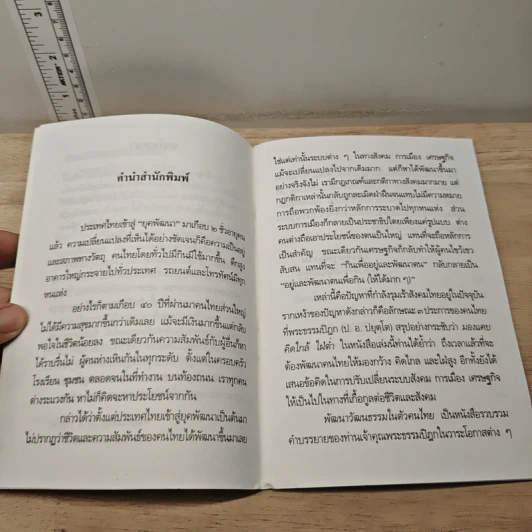 คำนำสำนักพิมพ์
ประเทศไทยเข้าสู่ "ยุคพัฒนา" มาเกือบ ๒ ชั่วอายุคน
แล้ว ความเปลี่ยนแปลงที่เห็นได้อย่างชัดเจนก็คือความเป็นอยู่
และสภาพทางวัตถุ คนไทยโดยทั่วไปมีกินมีใช้มากขึ้น ตึกสูง
อาคารใหญ่กระจายไปทั่วประเทศ รถยนต์และโทรทัศน์มีทุก
หนแห่ง
อย่างไรก็ตามเกือบ ๔๐ ปีที่ผ่านมาคนไทยส่วนใหญ่
ไม่ได้มีความสุขมากขึ้นกว่าเดิมเลย แม้จะมีเงินมากขึ้นแต่กลับ
พอใจในชีวิตน้อยลง ขณะเดียวกันความสัมพันธ์กับผู้อื่นก็หา
ได้ราบรื่นไม่ ผู้คนห่างเหินกันในทุกระดับ ตั้งแต่ในครอบครัว
โรงเรียน ชุมชน ตลอดจนในที่ทำงาน บนท้องถนน เราทุกคน
ต่างระแวงกัน หาไม่ก็คิดจะหาประโยชน์จากกัน
กล่าวได้ว่าตั้งแต่ประเทศไทยเข้าสู่ยุคพัฒนาเป็นต้นมา
ไม่ปรากฏว่าชีวิตและความสัมพันธ์ของคนไทยได้พัฒนาขึ้นมาเลย
ใช่แต่เท่านั้นระบบต่าง ๆ ในทางสังคม การเมือง เศรษฐกิจ
แม้จะเปลี่ยนแปลงไปจากเดิมมาก แต่ก็หาได้พัฒนาขึ้นมา
อย่างจริงจังไม่ เรามีกฎเกณฑ์และกติกาทางสังคมมากมาย แต่
กฎกติกาเหล่านั้นกลับถูกละเมิดฝ่าฝืนจนแทบไม่มีความหมาย
การถือพวกพ้องยิ่งกว่าหลักการระบาดไปทุกหนแห่ง ส่วน
ระบบการเมืองก็กลายเป็นประชาธิปไตยเพียงแค่รูปแบบ ต่าง
คนต่างถือเอาประโยชน์ของตนเป็นใหญ่ แทนที่จะถือหลักการ
เป็นสำคัญ ขณะเดียวกันเศรษฐกิจก็กลับทำให้ผู้คนไขว้เขว
สับสน แทนที่จะ "กินเพื่ออยู่และพัฒนาตน" กลับกลายเป็น
"อยู่และพัฒนาตนเพื่อกิน (ให้ได้มาก ๆ)"
เหล่านี้คือปัญหาที่กำลังรุมเร้าสังคมไทยอยู่ในปัจจุบัน
รากเหง้าของปัญหาดังกล่าวก็คือลักษณะ ๓ ประการของคนไทย
ที่พระธรรมปิฎก (ป. อ. ปยุตฺโต) สรุปอย่างกระชับว่า มองแคบ
คิดใกล้ ใฝ่ต่ำ ในหนังสือเล่มนี้ท่านได้ย้ำว่า ถึงเวลาแล้วที่จะ
ต้องพัฒนาคนไทยให้มองกว้าง คิดไกล และใฝ่สูง อีกทั้งยังได้
เสนอข้อคิดในการปรับเปลี่ยนระบบสังคม การเมือง เศรษฐกิจ
ให้เป็นไปในทางที่เกื้อกูลต่อชีวิตและสังคม
พัฒนาวัฒนธรรมในตัวคนไทย เป็นหนังสือรวบรวม
คำบรรยายของท่านเจ้าคุณพระธรรมปิฎกในวาระโอกาสต่าง ๆ
3
2
1